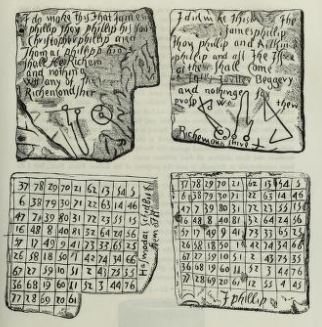 I do make this That James
phillip Jhon phillip his son
Christopher phillip and
Thomas phillip his
shall flee Richem
and nothing
wt any of the
Richemondsher
I did make this the
James phillip
Jhon phillip and
phillip and all the Issue
of them shall come
Beggery
and nothinge
prosp we them
Richemondshire
37 78 29 70 21 62 13 54 5
6 38 79 30 71 22 63 14 46
47 7 39 80 31 72 23 55 15
16 48 8 40 81 32 64 24 56
57 17 49 9 41 73 33 65 25
26 58 18 50 1 42 74 34 66
67 27 59 10 51 2 43 75 35
36 68 19 60 11 52 3 44 76
77 28 69 20 61
37 78 29 70 21 62 13 54 5
6 38 79 30 71 22 63 14 46
47 7 39 80 31 72 23 55 15
16 48 8 40 81 32 64 24 56
57 17 49 9 41 73 33 65 25
26 58 18 50 1 42 74 34 66
67 27 59 10 51 2 43 75 35
36 68 19 60 11 52 3 44 76
J phillip